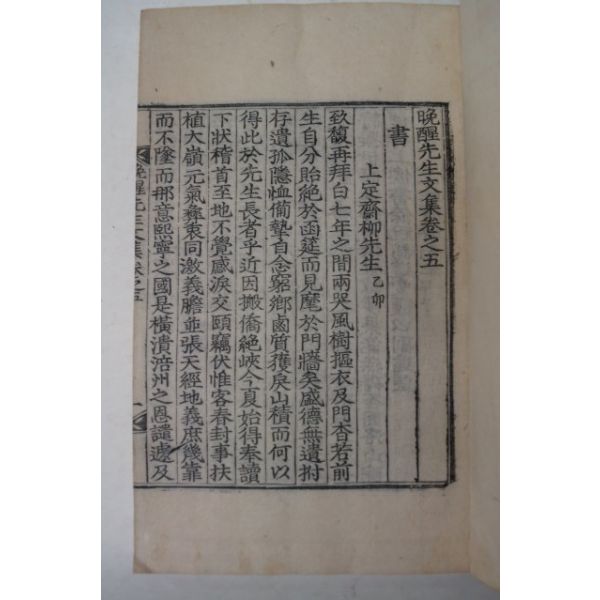 晚醒先生文集卷之五
書
上定齋柳先生 乙卯
致馥再拜白七年之間兩哭風樹摳衣及門杳若前
生自分貽絶於函筵而見麾於門牆矣盛德無遺拊
存遺孤隱恤備摯自念窮鄉鹵質獲戾山積而何以
得此於先生長者乎近因搬僑絶峽今夏始得奉讀
下狀稽首至地不覺感淚交頤竊伏惟客春封事扶
植大嶺元氣彛衷同激義膽並張天經地義庶幾靠
而不墜而那意熙寧之國是橫潰涪州之恩譴遽及
晚醒先生文集卷之五
一